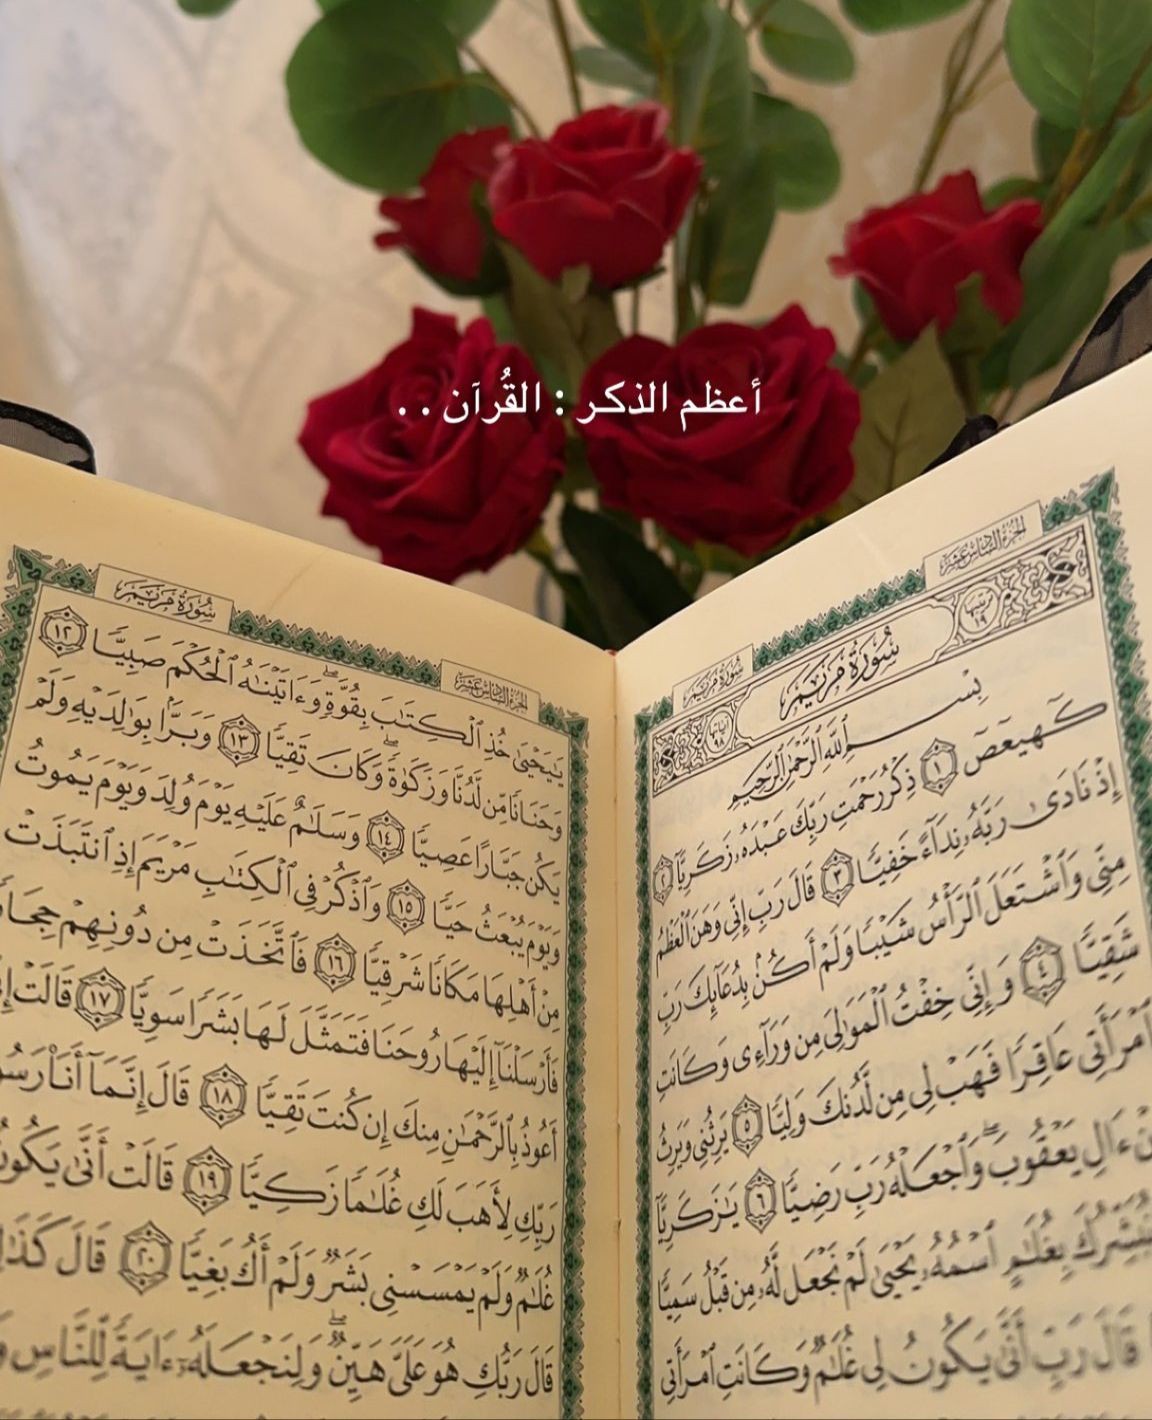 أعظم الذكر : القُرآن . .
الجزء السادس عشر
سورة مريم
ترتيبها ١٩
سُورَةُ مَرْيَمَ
آياتها ٩٨
بِسْمِ ٱللَّهِ ٱلرَّحْمَٰنِ ٱلرَّحِيمِ
كٓهيعٓصٓ ١ ذِكْرُ رَحْمَتِ رَبِّكَ عَبْدَهُۥ زَكَرِيَّآ ٢
إِذْ نَادَىٰ رَبَّهُۥ نِدَآءً خَفِيًّا ٣ قَالَ رَبِّ إِنِّى وَهَنَ ٱلْعَظْمُ
مِنِّى وَٱشْتَعَلَ ٱلرَّأْسُ شَيْبًا وَلَمْ أَكُنۢ بِدُعَآئِكَ رَبِّ
شَقِيًّا ٤ وَإِنِّى خِفْتُ ٱلْمَوَٰلِىَ مِن وَرَآءِى وَكَانَتِ
ٱمْرَأَتِى عَاقِرًا فَهَبْ لِى مِن لَّدُنكَ وَلِيًّا ٥ يَرِثُنِى وَيَرِثُ
مِنْ ءَالِ يَعْقُوبَ ۖ وَٱجْعَلْهُ رَبِّ رَضِيًّا ٦ يَٰزَكَرِيَّآ
نُبَشِّرُكَ بِغُلَٰمٍ ٱسْمُهُۥ يَحْيَىٰ لَمْ نَجْعَل لَّهُۥ مِن قَبْلُ سَمِيًّا
قَالَ رَبِّ أَنَّىٰ يَكُونُ لِى غُلَٰمٌ وَكَانَتِ ٱمْرَأَتِى
سورة مريم
الجزء السادس عشر
يَٰيَحْيَىٰ خُذِ ٱلْكِتَٰبَ بِقُوَّةٍ ۖ وَءَاتَيْنَٰهُ ٱلْحُكْمَ صَبِيًّا ١٢
وَحَنَانًا مِّن لَّدُنَّا وَزَكَوٰةً ۖ وَكَانَ تَقِيًّا ١٣ وَبَرًّۢا بِوَٰلِدَيْهِ وَلَمْ
يَكُن جَبَّارًا عَصِيًّا ١٤ وَسَلَٰمٌ عَلَيْهِ يَوْمَ وُلِدَ وَيَوْمَ يَمُوتُ
وَيَوْمَ يُبْعَثُ حَيًّا ١٥ وَٱذْكُرْ فِى ٱلْكِتَٰبِ مَرْيَمَ إِذِ ٱنتَبَذَتْ
مِنْ أَهْلِهَا مَكَانًا شَرْقِيًّا ١٦ فَٱتَّخَذَتْ مِن دُونِهِمْ حِجَابًا
فَأَرْسَلْنَآ إِلَيْهَا رُوحَنَا فَتَمَثَّلَ لَهَا بَشَرًا سَوِيًّا ١٧ قَالَتْ إِنِّىٓ
أَعُوذُ بِٱلرَّحْمَٰنِ مِنكَ إِن كُنتَ تَقِيًّا ١٨ قَالَ إِنَّمَآ أَنَا۠ رَسُولُ
رَبِّكِ لِأَهَبَ لَكِ غُلَٰمًا زَكِيًّا ١٩ قَالَتْ أَنَّىٰ يَكُونُ
غُلَٰمٌ وَلَمْ يَمْسَسْنِى بَشَرٌ وَلَمْ أَكُ بَغِيًّا ٢٠ قَالَ كَذَٰلِكِ
قَالَ رَبُّكِ هُوَ عَلَىَّ هَيِّنٌ ۖ وَلِنَجْعَلَهُۥٓ ءَايَةً لِّلنَّاسِ